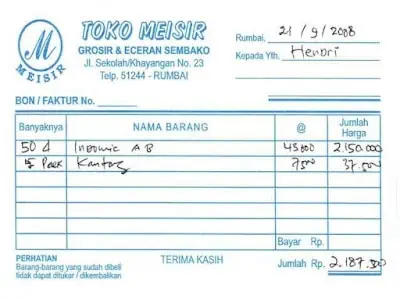 TOKO MEISIR
GROSIR & ECERAN SEMBAKO
Jl. Sekolah/Khayangan No. 23
Telp. 51244 - RUMBAI
M
MEISIR
Rumbai, 21/9/2008
Kepada Yth. Hendri
BON / FAKTUR No.
Banyaknya NAMA BARANG @ Jumlah Harga
50 A B 43000 2.150.000
5 Pack Kantong 7500 37.500
Bayar Rp.
PERHATIAN
Barang-barang yang sudah dibeli
tidak dapat ditukar / dikembalikan
TERIMA KASIH
Jumlah Rp. 2.187.500